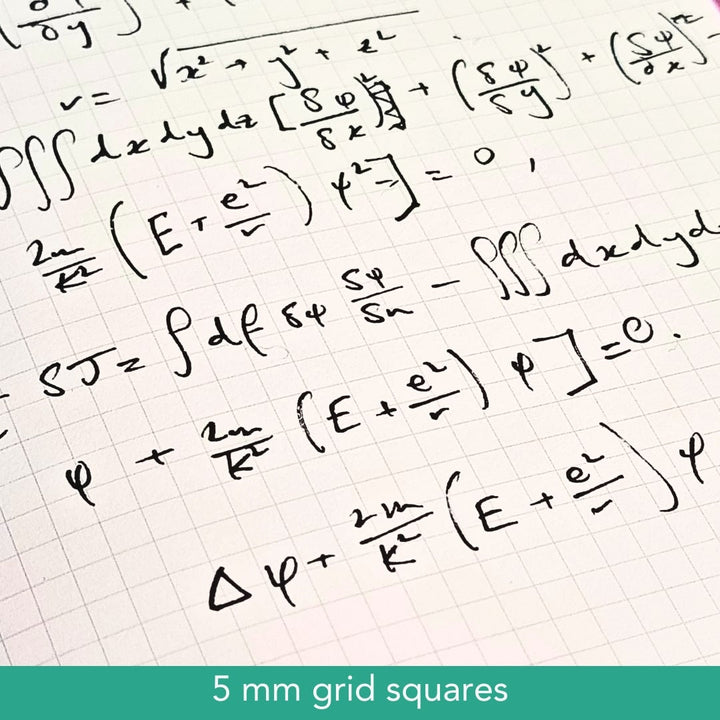 (δy) +
r = √x² + y² + z²
∫∫∫ dx dy dz [(δφ/δx)² + (δφ/δy)² + (δφ/δx)² -
2m/K² (E + e²/r) φ²] = 0,
δJ = ∫ df δφ δφ/δn - ∫∫∫ dx dy d
φ + 2m/K² (E + e²/r) φ] = 0.
Δφ + 2m/K² (E + e²/r) φ
5 mm grid squares